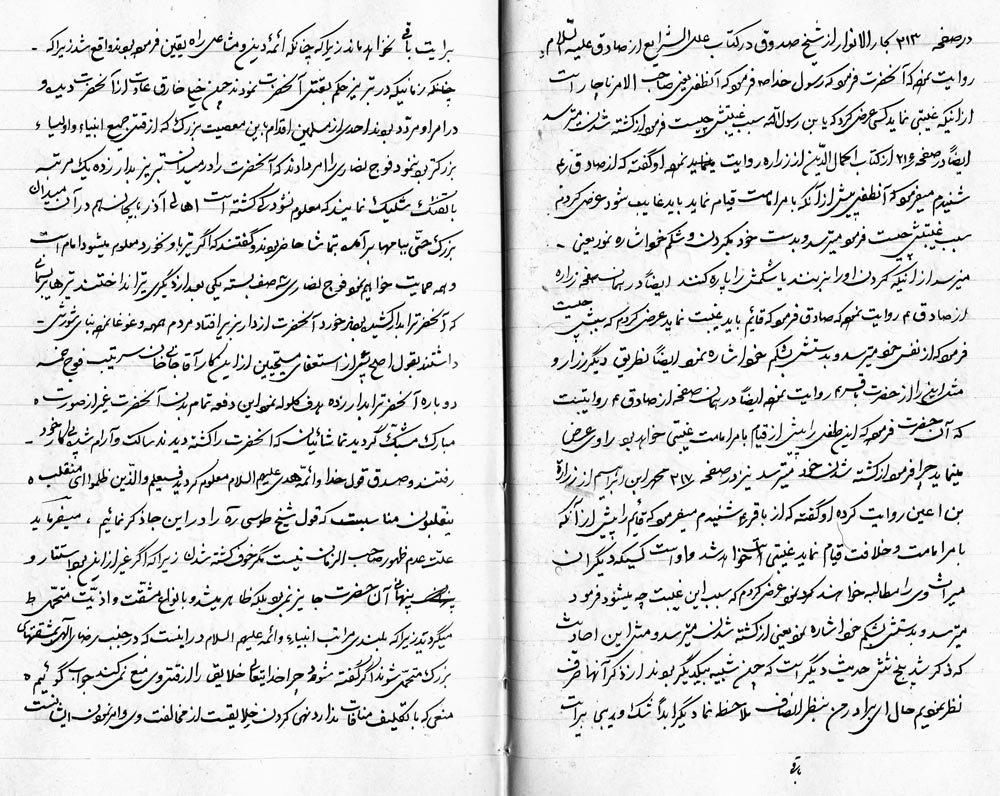 در صفحه ۲۱۳ بحار الانوار از شیخ صدوق در کتاب علل الشرایع از صادق علیه السلام
روایت نموده که آنحضرت فرموده که رسول خدا ص فرموده که آنطفل یعنی صاحب الامر ناچار است
از اینکه غیبتی نماید کسی عرض کرد که یا بن رسول الله سبب غیبتش چیست فرمود از کشته شدن میترسد
ایضاً در صفحه ۲۱۶ از کتاب اکمال الدین از زراره روایت نموده او گفته که از صادق ع
شنیدم میفرمود که آنطفل پیش از آنکه بامر امامت قیام نماید باید غایب شود عرض کردم
سبب غیبتش چیست فرمود میترسد و بدست خود بگردن و شکم خود اشاره نمود یعنی -
میترسد از اینکه گردن او را بزنند یا شکمش را پاره کنند ایضاً در همان صفحه زراره
از صادق ع روایت نموده که صادق فرمود که قائم باید غیبت نماید عرض کردم که سببش چیست
فرمود که از نفس خود میترسد و بدستش بشکم خود اشاره نمود ایضاً بطریق دیگر زراره و
مثل اینرا از حضرت روایت نموده ایضاً در همان صفحه از صادق ع روایتست
که آن حضرت فرموده که این طفل را پیش از قیام بامر امامت غیبتی خواهد بود راوی عرض
مینماید چرا فرمود از کشته شدن خود میترسد نیز در صفحه ۲۱۷ ابراهیم از زرارة
بن اعین روایت کرده او گفته که از باقر ع شنیدم میفرمود که قائم را پیش از آنکه
بامر امامت و خلافت قیام نماید غیبتی البته خواهد شد و اوست کسیکه دیگران
میراث وی را مطالبه خواهند نمود عرض کردم که سبب این غیبت چه میشود فرمود
میترسد و بدستش بشکم خود اشاره نمود یعنی از کشته شدن میترسد و مثل این احادیث
که ذکر شد پنج شش حدیث دیگر است که چون شبیه بیکدیگر بودند از ذکر آنها صرف
نظر نمودیم حال ای برادر من بنظر انصاف ملاحظه نما دیگر ابداً شک و ریبی برایت
برایت باقی نخواهد ماند زیرا که چنانکه ائمهٔ دین و مشاعل راه یقین فرموده بودند واقع شد زیرا که -
چنانکه زمانیکه در تبریز حکم بقتل آنحضرت نمودند چون خیلی خارق عادات از آنحضرت دیده و
در امر او مردد بودند احدی از مسلمین اقدام باین معصیت بزرگ که از قتل جمیع انبیاء و اولیاء
بزرگتر بود ننمود فوج نصاری را امر دادند که آنحضرت را در میدان تبریز بدار زده یک مرتبه
با تفنگ شلیک نمایند که معلوم نشود کی کشته است اهالی آذربایجان هم در آن میدان
بزرگ حتی ببامها برآمده تماشا حاضر بودند و گفتند که اگر تیر باو نخورد معلوم میشود امام است
و همه حمایت خواهیم نمود فوج نصاری سه صف بسته یکی بعد از دیگری تیر انداختند تیرها بریسمانی
که آنحضرترا بدار کشیده بودند خورد آنحضرت از دار بزیر افتاد مردم همهمه و غوغا نموده بنای شورش -
داشتند بقول اصح پس از استعفای مسیحیین از این کار آقا جان سرتیپ فوج خمسه
دوباره آنحضرترا بدار زده هدف گلوله نمود این دفعه تمام بدن آنحضرت غیر از صورت
مبارک مشبک گردید تماشائیان که آنحضرت را کشته دیدند ساکت و آرام شده بمحل خود -
رفتند و صدق قول خدا و ائمهٔ هدی علیهم السلام معلوم گردید فسیعلم والذین ظلموا ای منقلب
ینقلبون مناسبست که قول شیخ طوسی ره را در این جا ذکر نمائیم ، میفرماید
علت عدم ظهور صاحب الزمان نیست مگر خوف کشته شدن زیرا که اگر غیر از این بود استتار و
پنهانی آن حضرت جایز نبود بلکه ظاهر میشد و بانواع مشقت و اذیت متحمل
میگردید زیرا که بلندی مراتب انبیاء و ائمه علیهم السلام در اینست که در جنب رضای الهی بمشقتهای
بزرگ متحمل شوند اگر گفته شود چرا خدایتعالی خلایق را از قتل وی منع نمیکند جواب گوئیم
منعی که با تکلیف منافات ندارد نهی کردن خلایقست از مخالفت وی و امر نمودن ایشانست